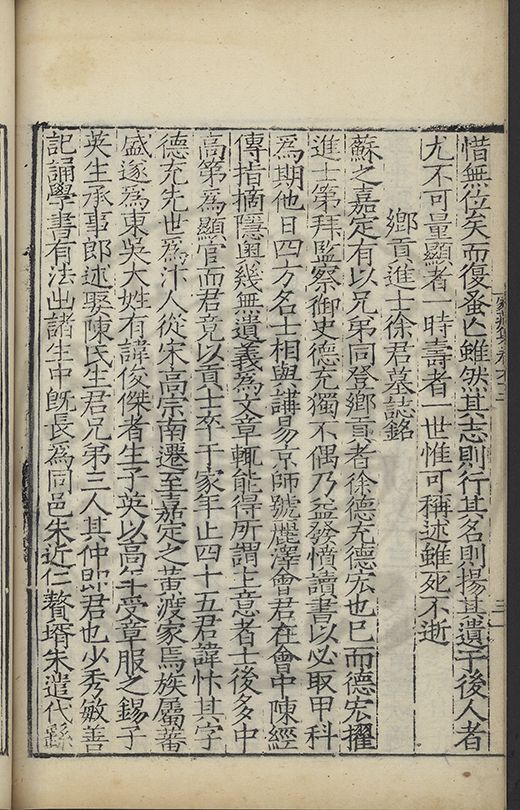 惜無位矣而復蚤亡雖然其志則行其名則揚其遺于後人者
尤不可量顯者一時壽者一世惟可稱述雖死不逝
鄉貢進士徐君墓誌銘
蘇之嘉定有以兄弟同登鄉貢者徐德充德宏也已而德宏擢
進士第拜監察御史德充獨不偶乃益發憤讀書以必取甲科
為期他日四方名士相與講易京師號麗澤會君在會中陳經
傳指摘隱奧幾無遺義為文章輒能得所謂上意者士後多中
高第為顯官而君竟以貢士卒于家年止四十五君諱忭其字
德充先世為汴人從宋高宗南遷至嘉定之黃渡家焉族屬蕃
盛遂為東吳大姓有諱俊傑者生子英以高年受章服之錫子
英生承事郎述娶陳氏生君兄弟三人其仲即君也少秀敏善
記誦學書有法出諸生中既長為同邑朱近仁贅壻朱遣代繇